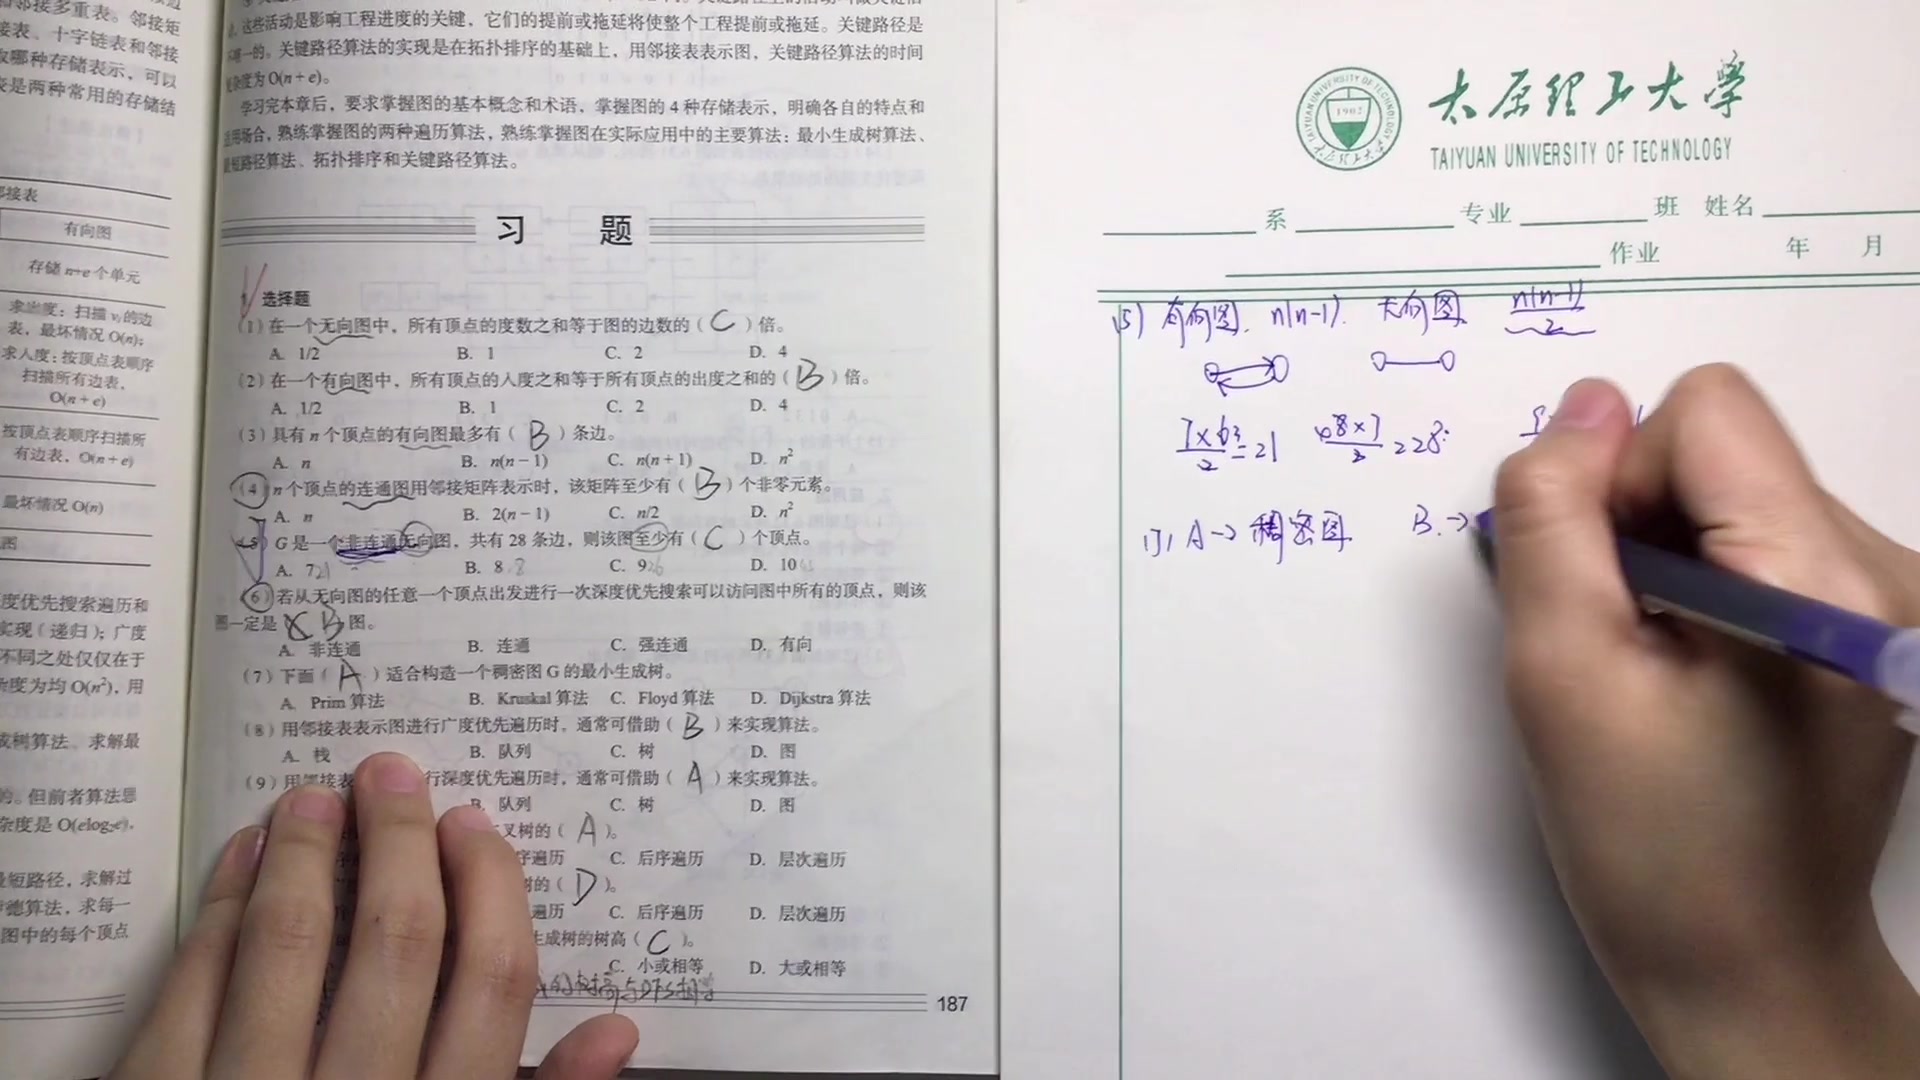 邻接多重表。邻接矩
接表、十字链表和邻接
取哪种存储表示，可以
表是两种常用的存储结
邻接表
有向图
存储 n+e 个单元
求出度：扫描 vi 的边
表，最坏情况 O(n)；
求入度：按顶点表顺序
扫描所有边表，
O(n + e)
按顶点表顺序扫描所
有边表，O(n + e)
最坏情况 O(n)
图
度优先搜索遍历和
实现（递归）；广度
不同之处仅仅在于
杂度为均 O(n²)，用
成树算法、求解最
的。但前者算法思
杂度是 O(elog₂e)，
最短路径，求解过
德算法，求每一
图中的每个顶点
这些活动是影响工程进度的关键，它们的提前或拖延将使整个工程提前或拖延。关键路径是
不唯一的。关键路径算法的实现是在拓扑排序的基础上，用邻接表表示图，关键路径算法的时间
复杂度为 O(n + e)。
学习完本章后，要求掌握图的基本概念和术语，掌握图的 4 种存储表示，明确各自的特点和
适用场合，熟练掌握图的两种遍历算法，熟练掌握图在实际应用中的主要算法：最小生成树算法、
最短路径算法、拓扑排序和关键路径算法。
习 题
1 选择题
（1）在一个无向图中，所有顶点的度数之和等于图的边数的（ C ）倍。
A. 1/2 B. 1 C. 2 D. 4
（2）在一个有向图中，所有顶点的入度之和等于所有顶点的出度之和的（ B ）倍。
A. 1/2 B. 1 C. 2 D. 4
（3）具有 n 个顶点的有向图最多有（ B ）条边。
A. n B. n(n − 1) C. n(n + 1) D. n²
（4）n 个顶点的连通图用邻接矩阵表示时，该矩阵至少有（ B ）个非零元素。
A. n B. 2(n − 1) C. n/2 D. n²
（5）G 是一个非连通无向图，共有 28 条边，则该图至少有（ C ）个顶点。
A. 7 21 B. 8 28 C. 9 D. 10
（6）若从无向图的任意一个顶点出发进行一次深度优先搜索可以访问图中所有的顶点，则该
图一定是 B 图。
A. 非连通 B. 连通 C. 强连通 D. 有向
（7）下面（ A ）适合构造一个稠密图 G 的最小生成树。
A. Prim 算法 B. Kruskal 算法 C. Floyd 算法 D. Dijkstra 算法
（8）用邻接表表示图进行广度优先遍历时，通常可借助（ B ）来实现算法。
A. 栈 B. 队列 C. 树 D. 图
（9）用邻接表 行深度优先遍历时，通常可借助（ A ）来实现算法。
B. 队列 C. 树 D. 图
叉树的（ A ）。
序遍历 C. 后序遍历 D. 层次遍历
树的（ D ）。
遍历 C. 后序遍历 D. 层次遍历
生成树的树高（ C ）。
C. 小或相等 D. 大或相等
187
TAIYUAN UNIVERSITY OF TECHNOLOGY
1902
太原理工大学
太原理工大学
TAIYUAN UNIVERSITY OF TECHNOLOGY
系 专业 班 姓名
作业 年 月
(5) 有向图. n(n-1). 无向图 n(n-1)/2
7×6/2=21 8×7/2=28
(7) A→稠密图 B.→